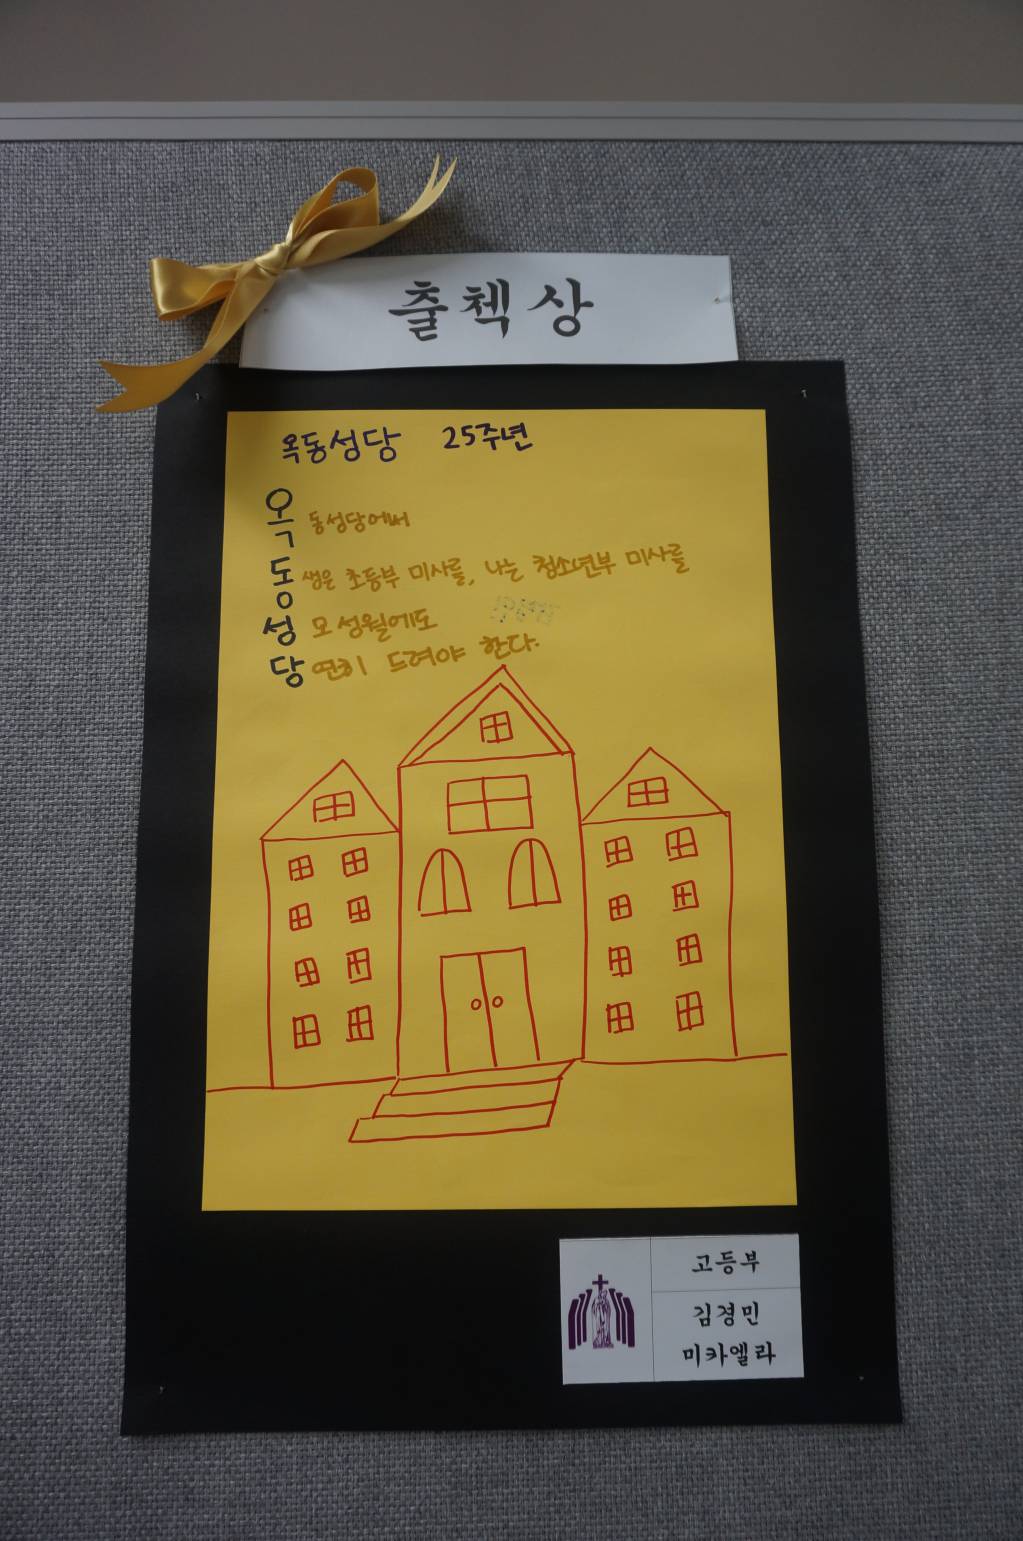 출첵상
옥동성당 25주년
옥 동성당에서
동 생은 초등부 미사를, 나는 청소년부 미사를
성 모성월에도
당 연히 드려야 한다.
고등부
김경민
미카엘라